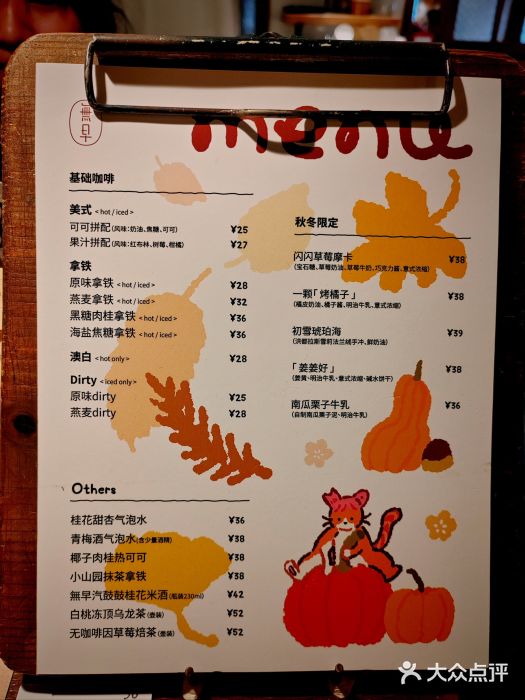 menu
基础咖啡
美式 < hot / iced >
可可拼配 (风味:奶油、焦糖、可可) ¥25
果汁拼配 (风味:红布林、树莓、柑橘) ¥27
拿铁
原味拿铁 < hot / iced > ¥28
燕麦拿铁 < hot / iced > ¥32
黑糖肉桂拿铁 < hot / iced > ¥36
海盐焦糖拿铁 < hot / iced > ¥36
澳白 < hot only > ¥28
Dirty < iced only >
原味dirty ¥25
燕麦dirty ¥28
秋冬限定
闪闪草莓摩卡 ¥38
(宝石糖、草莓奶油、草莓牛奶、巧克力酱、意式浓缩)
一颗「烤橘子」 ¥38
(橘皮奶油、橘子酱、明治牛乳、意式浓缩)
初雪琥珀海 ¥39
(洪都拉斯雪莉法兰绒手冲、鲜奶油)
「姜姜好」 ¥38
(姜黄、明治牛乳、意式浓缩、碱水饼干)
南瓜栗子牛乳 ¥36
(自制南瓜栗子泥、明治牛乳)
Others
桂花甜杏气泡水 ¥36
青梅酒气泡水 (含少量酒精) ¥38
椰子肉桂热可可 ¥38
小山园抹茶拿铁 ¥38
無早汽鼓鼓桂花米酒 (瓶装230ml) ¥42
白桃冻顶乌龙茶 (壶装) ¥52
无咖啡因草莓焙茶 (壶装) ¥52
大众点评